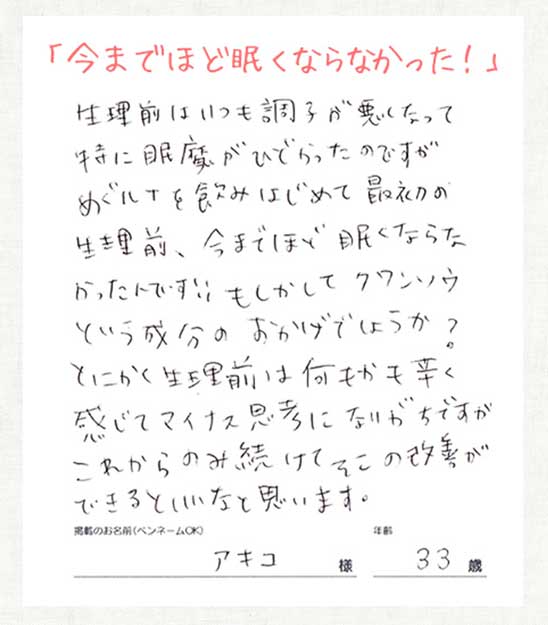 「今までほど眠くならなかった！」
生理前はいつも調子が悪くなって
特に眠魔がひどかったのですが
めぐルナを飲みはじめて最初の
生理前、今までほど眠くならな
かったんです!! もしかしてクワンソウ
という成分のおかげでしょうか？
とにかく生理前は何もかも辛く
感じてマイナス思考になりがちですが
これからのみ続けてそこの改善が
できるといいなと思います。
掲載のお名前(ペンネームOK) 年齢
アキコ 様 33 歳